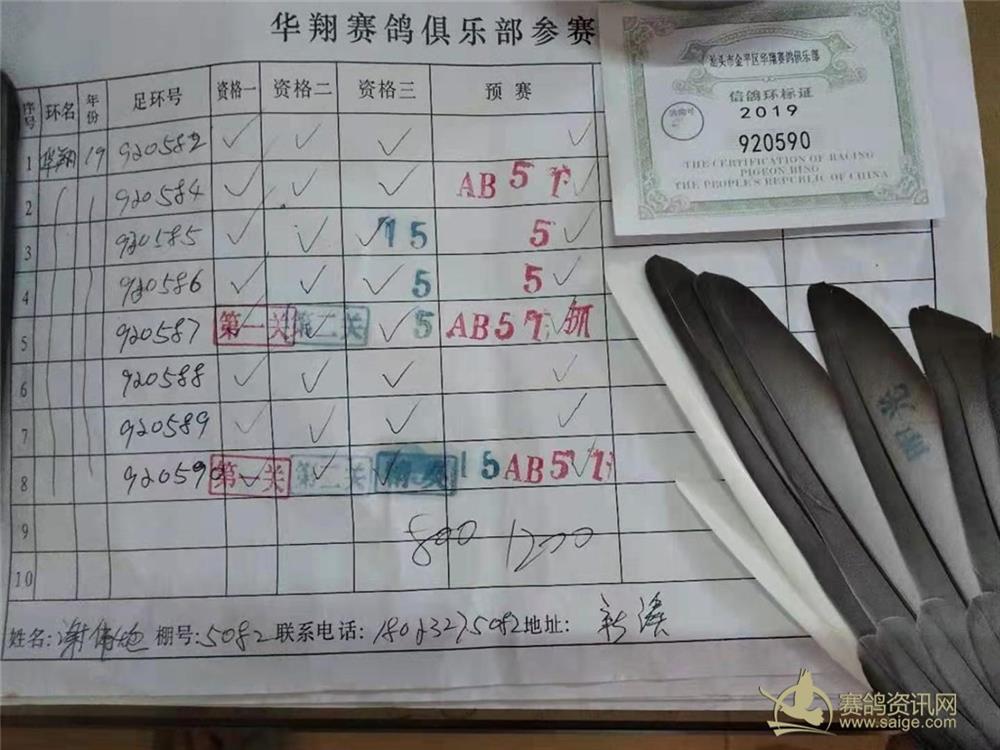 华翔赛鸽俱乐部参赛
序号 环名 年份 足环号 资格一 资格二 资格三 预赛
1 华翔 19 920582 ✓ ✓ ✓ ✓
2 920584 ✓ ✓ ✓ AB 5 ✓
3 920585 ✓ ✓ ✓ 15 5 ✓
4 920586 ✓ ✓ ✓ 5 5 ✓
5 920587 第一关 ✓ 第二关 ✓ ✓ 5 AB51 ✓
6 920588 ✓ ✓ ✓ ✓
7 920589 ✓ ✓ ✓ ✓
8 920590 第一关 ✓ 第二关 ✓ ✓ 15 AB51 ✓
9
10
800 1200
姓名: 谢 棚号: 5082 联系电话: 地址: 新溪
汕头市金平区华翔赛鸽俱乐部
信鸽环标证
2019
920590
THE CERTIFICATION OF RACING
PIGEON RING
THE PEOPLE'S REPUBLIC OF CHINA
赛鸽资讯网
www.saige.com